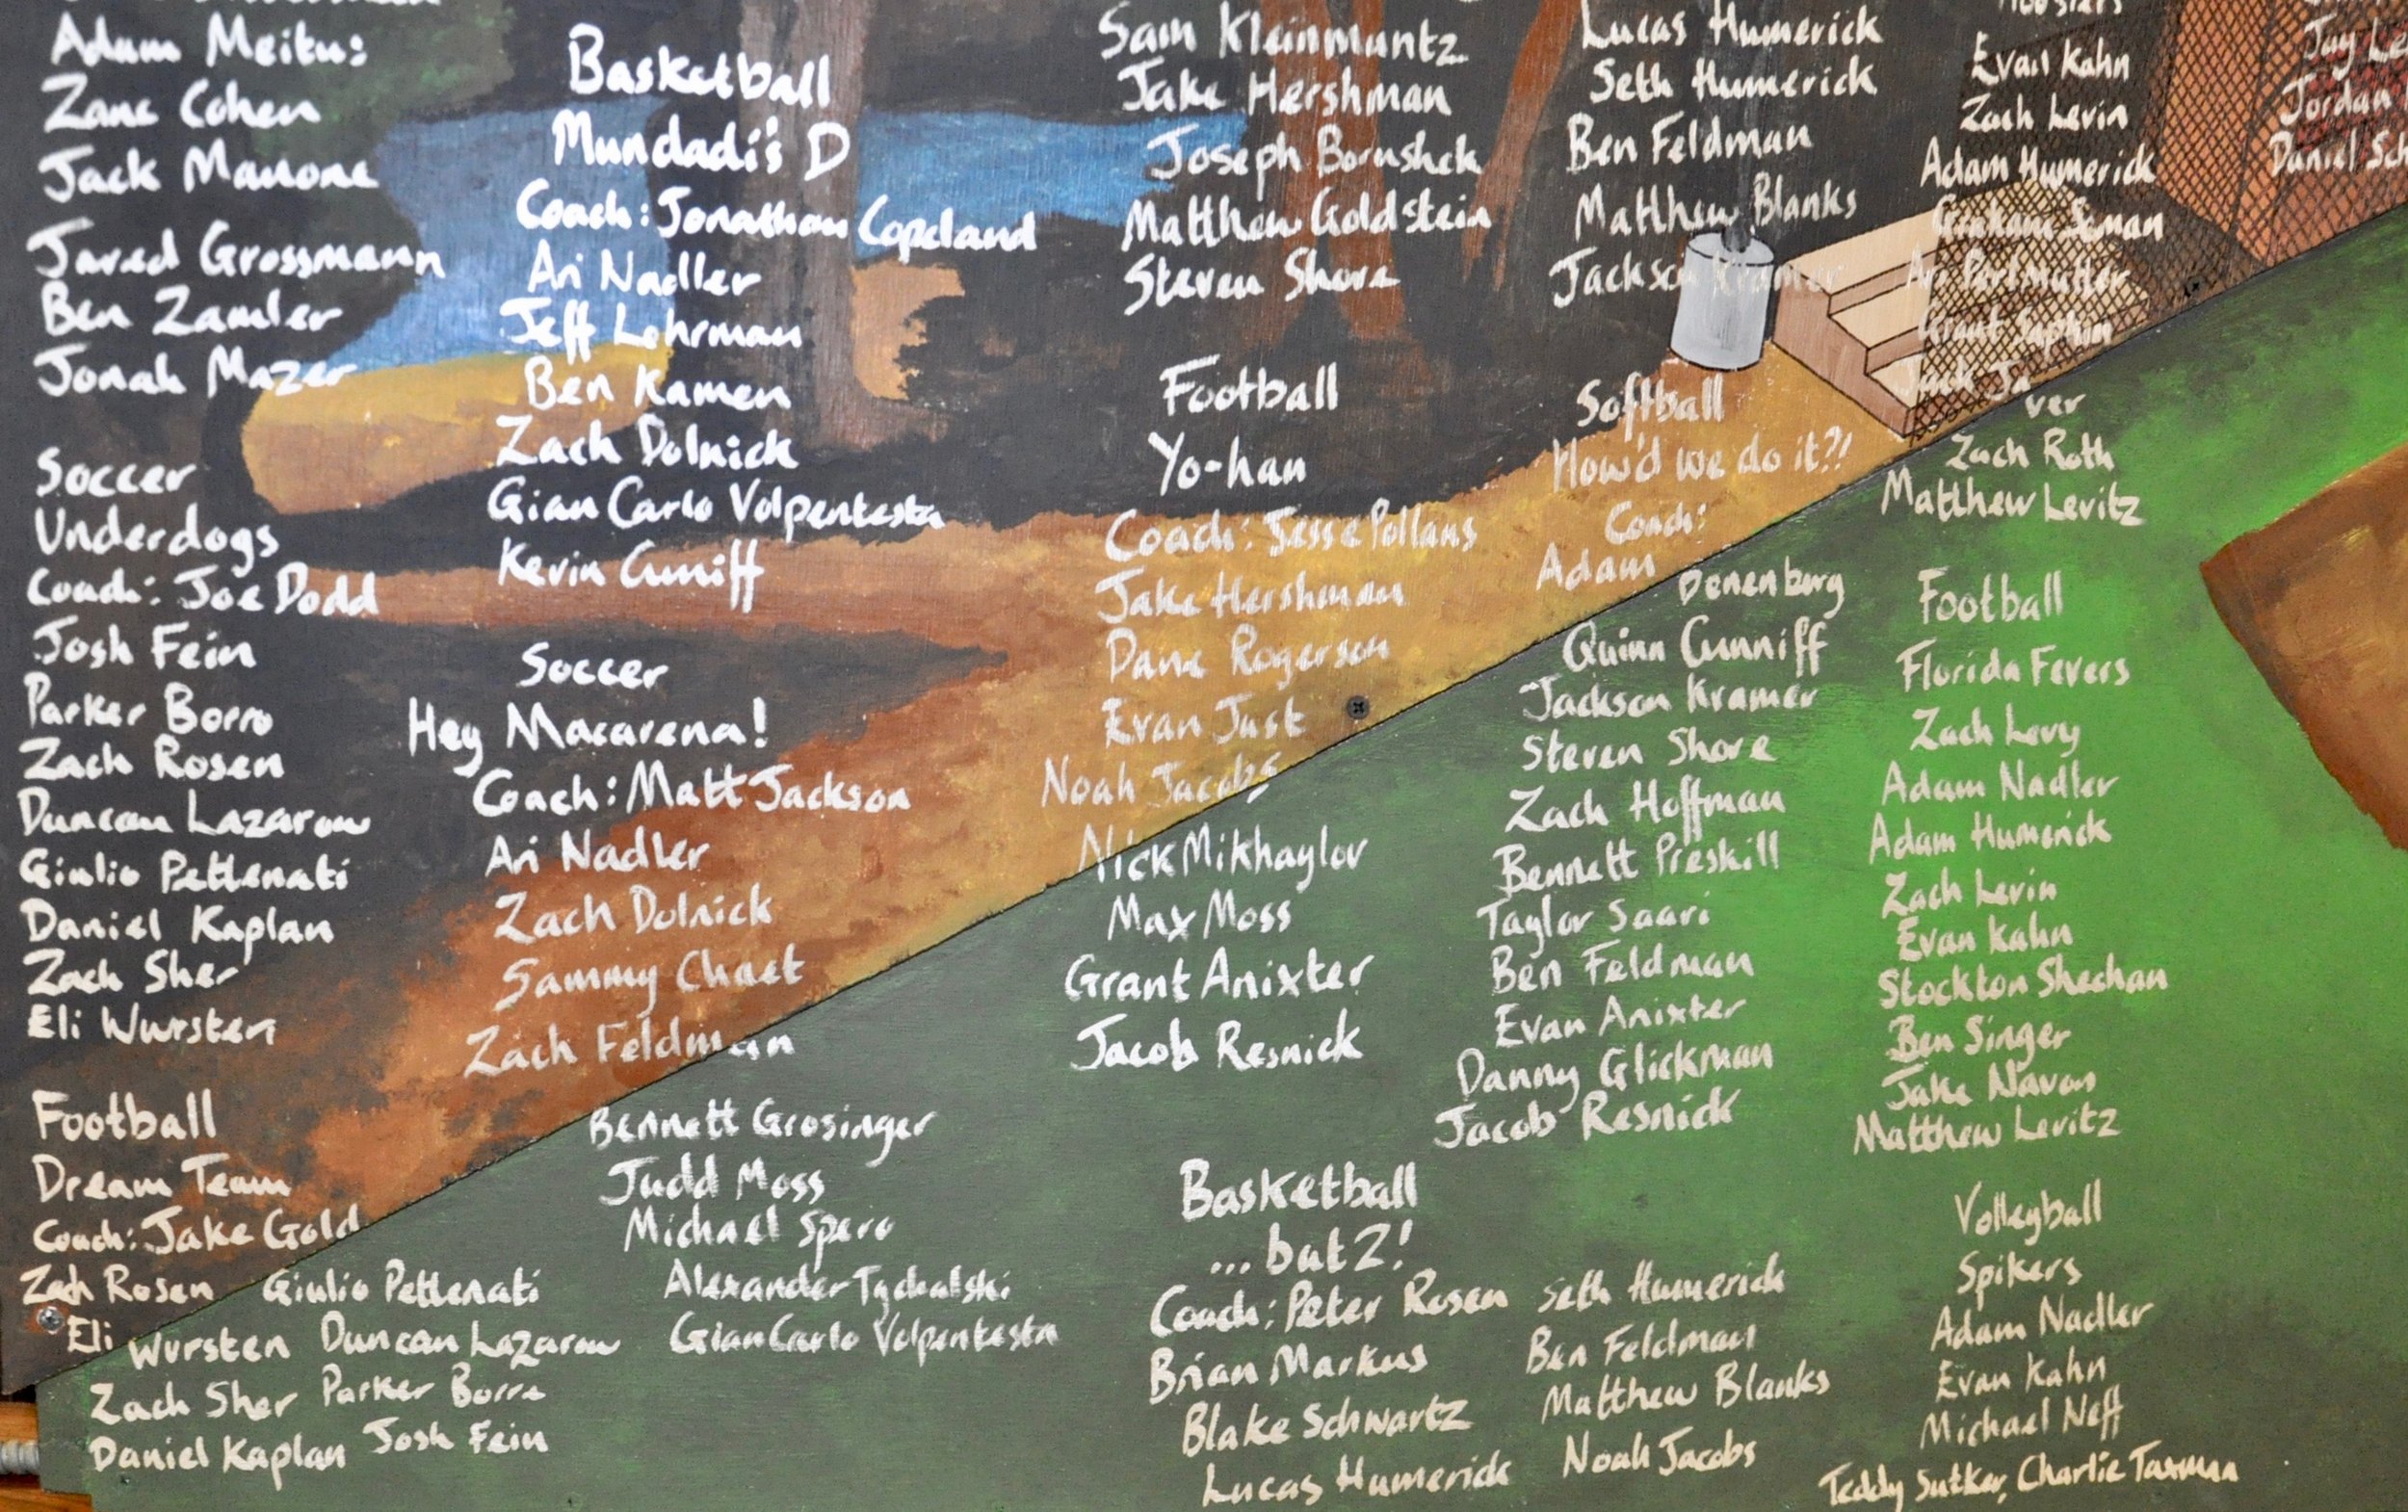 Adam Meitus
Zane Cohen
Jack Manone
Jared Grossmann
Ben Zamler
Jonah Mazer
Soccer
Underdogs
Coach: Joe Dodd
Josh Fein
Parker Borro
Zach Rosen
Duncan Lazarow
Giulio Pettenati
Daniel Kaplan
Zach Sher
Eli Wursten
Football
Dream Team
Coach: Jake Gold
Zach Rosen Giulio Pettenati
Eli Wursten Duncan Lazarow
Zach Sher Parker Borro
Daniel Kaplan Josh Fein
Basketball
Mundadi's D
Coach: Jonathan Copeland
Ari Nadler
Jeff Lehrman
Ben Kamen
Zach Dolnick
Gian Carlo Volpentesta
Kevin Cuniff
Soccer
Hey Macarena!
Coach: Matt Jackson
Ari Nadler
Zach Dolnick
Sammy Chaet
Zach Feldman
Bennett Grosinger
Judd Moss
Michael Spero
Alexander Tychalski
Gian Carlo Volpentesta
Sam Kleinmuntz
Jake Hershman
Joseph Bornshek
Matthew Goldstein
Steven Shore
Football
Yo-han
Coach: Jesse Pollans
Jake Hershman
Dane Rogerson
Evan Just
Noah Jacobs
Nick Mikhaylov
Max Moss
Grant Anixter
Jacob Resnick
Basketball
...but 2!
Coach: Peter Rosen
Brian Markus
Blake Schwartz
Lucas Humerick
Seth Humerick
Ben Feldman
Matthew Blanks
Noah Jacobs
Lucas Humerick
Seth Humerick
Ben Feldman
Matthew Blanks
Jackson Kramer
Softball
How'd we do it?!
Coach:
Adam Denenberg
Quinn Cunniff
Jackson Kramer
Steven Shore
Zach Hoffman
Bennett Preskill
Taylor Saari
Ben Feldman
Evan Anixter
Danny Glickman
Jacob Resnick
Hoosiers
Evan Kahn
Zach Levin
Adam Humerick
Graham Seman
Ari Perlmutter
Grant
Jack Ja
ver
Zach Roth
Matthew Levitz
Football
Florida Fevers
Zach Levy
Adam Nadler
Adam Humerick
Zach Levin
Evan Kahn
Stockton Sheehan
Ben Singer
Jake Navon
Matthew Levitz
Volleyball
Spikers
Adam Nadler
Evan Kahn
Michael Neff
Teddy Sutker, Charlie Taxman
Jay
Jordan
Daniel